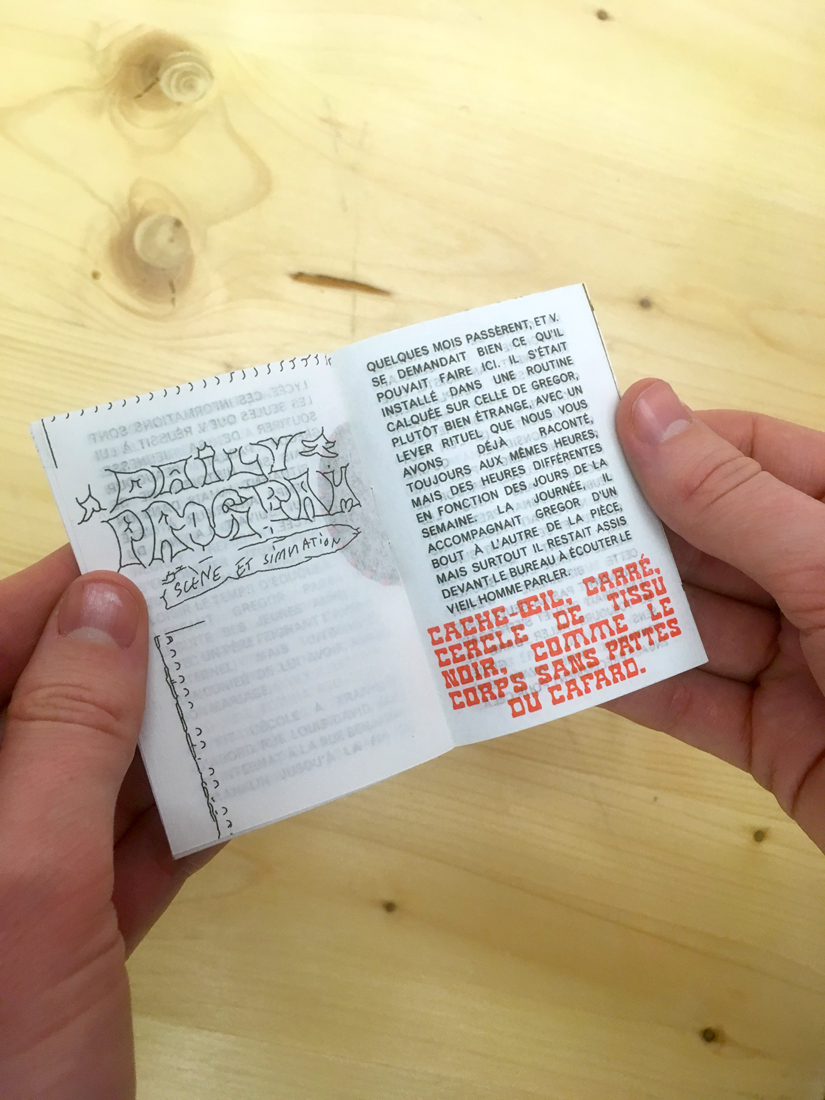 DAILY
PROGRAM
SCÈNE ET SIMULATION
QUELQUES MOIS PASSÈRENT, ET V.
SE DEMANDAIT BIEN CE QU'IL
POUVAIT FAIRE ICI. IL S'ÉTAIT
INSTALLÉ DANS UNE ROUTINE
CALQUÉE SUR CELLE DE GREGOR,
PLUTÔT BIEN ÉTRANGE, AVEC UN
LEVER RITUEL QUE NOUS VOUS
AVONS DÉJÀ RACONTÉ,
TOUJOURS AUX MÊMES HEURES,
MAIS DES HEURES DIFFÉRENTES
EN FONCTION DES JOURS DE LA
SEMAINE. LA JOURNÉE, IL
ACCOMPAGNAIT GREGOR D'UN
BOUT À L'AUTRE DE LA PIÈCE,
MAIS SURTOUT IL RESTAIT ASSIS
DEVANT LE BUREAU À ÉCOUTER LE
VIEIL HOMME PARLER.
CACHE-ŒIL, CARRÉ,
CERCLE DE TISSU
NOIR, COMME LE
CORPS SANS PATTES
DU CAFARD.